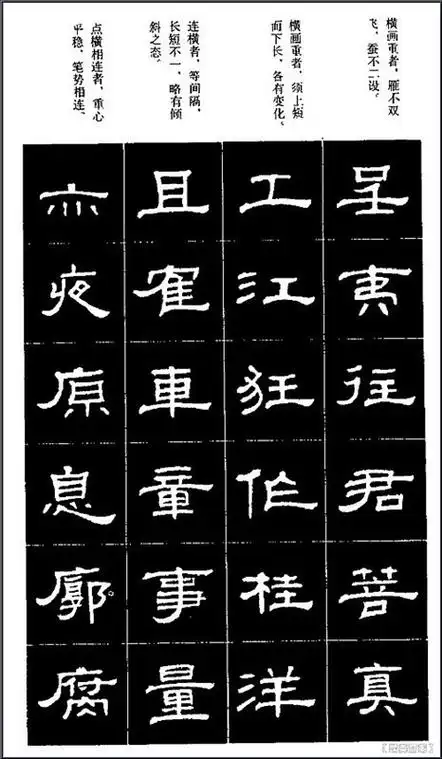 横画重者，雁不双
飞，蚕不二设。
呈夷往君菩真
横画重者，须上短
而下长，各有变化。
工江狂作桂洋
连横者，等间隔，
长短不一，略有倾
斜之态。
且車章事量
点横相连者，重心
平稳，笔势相连。
亦夜原息廓腐